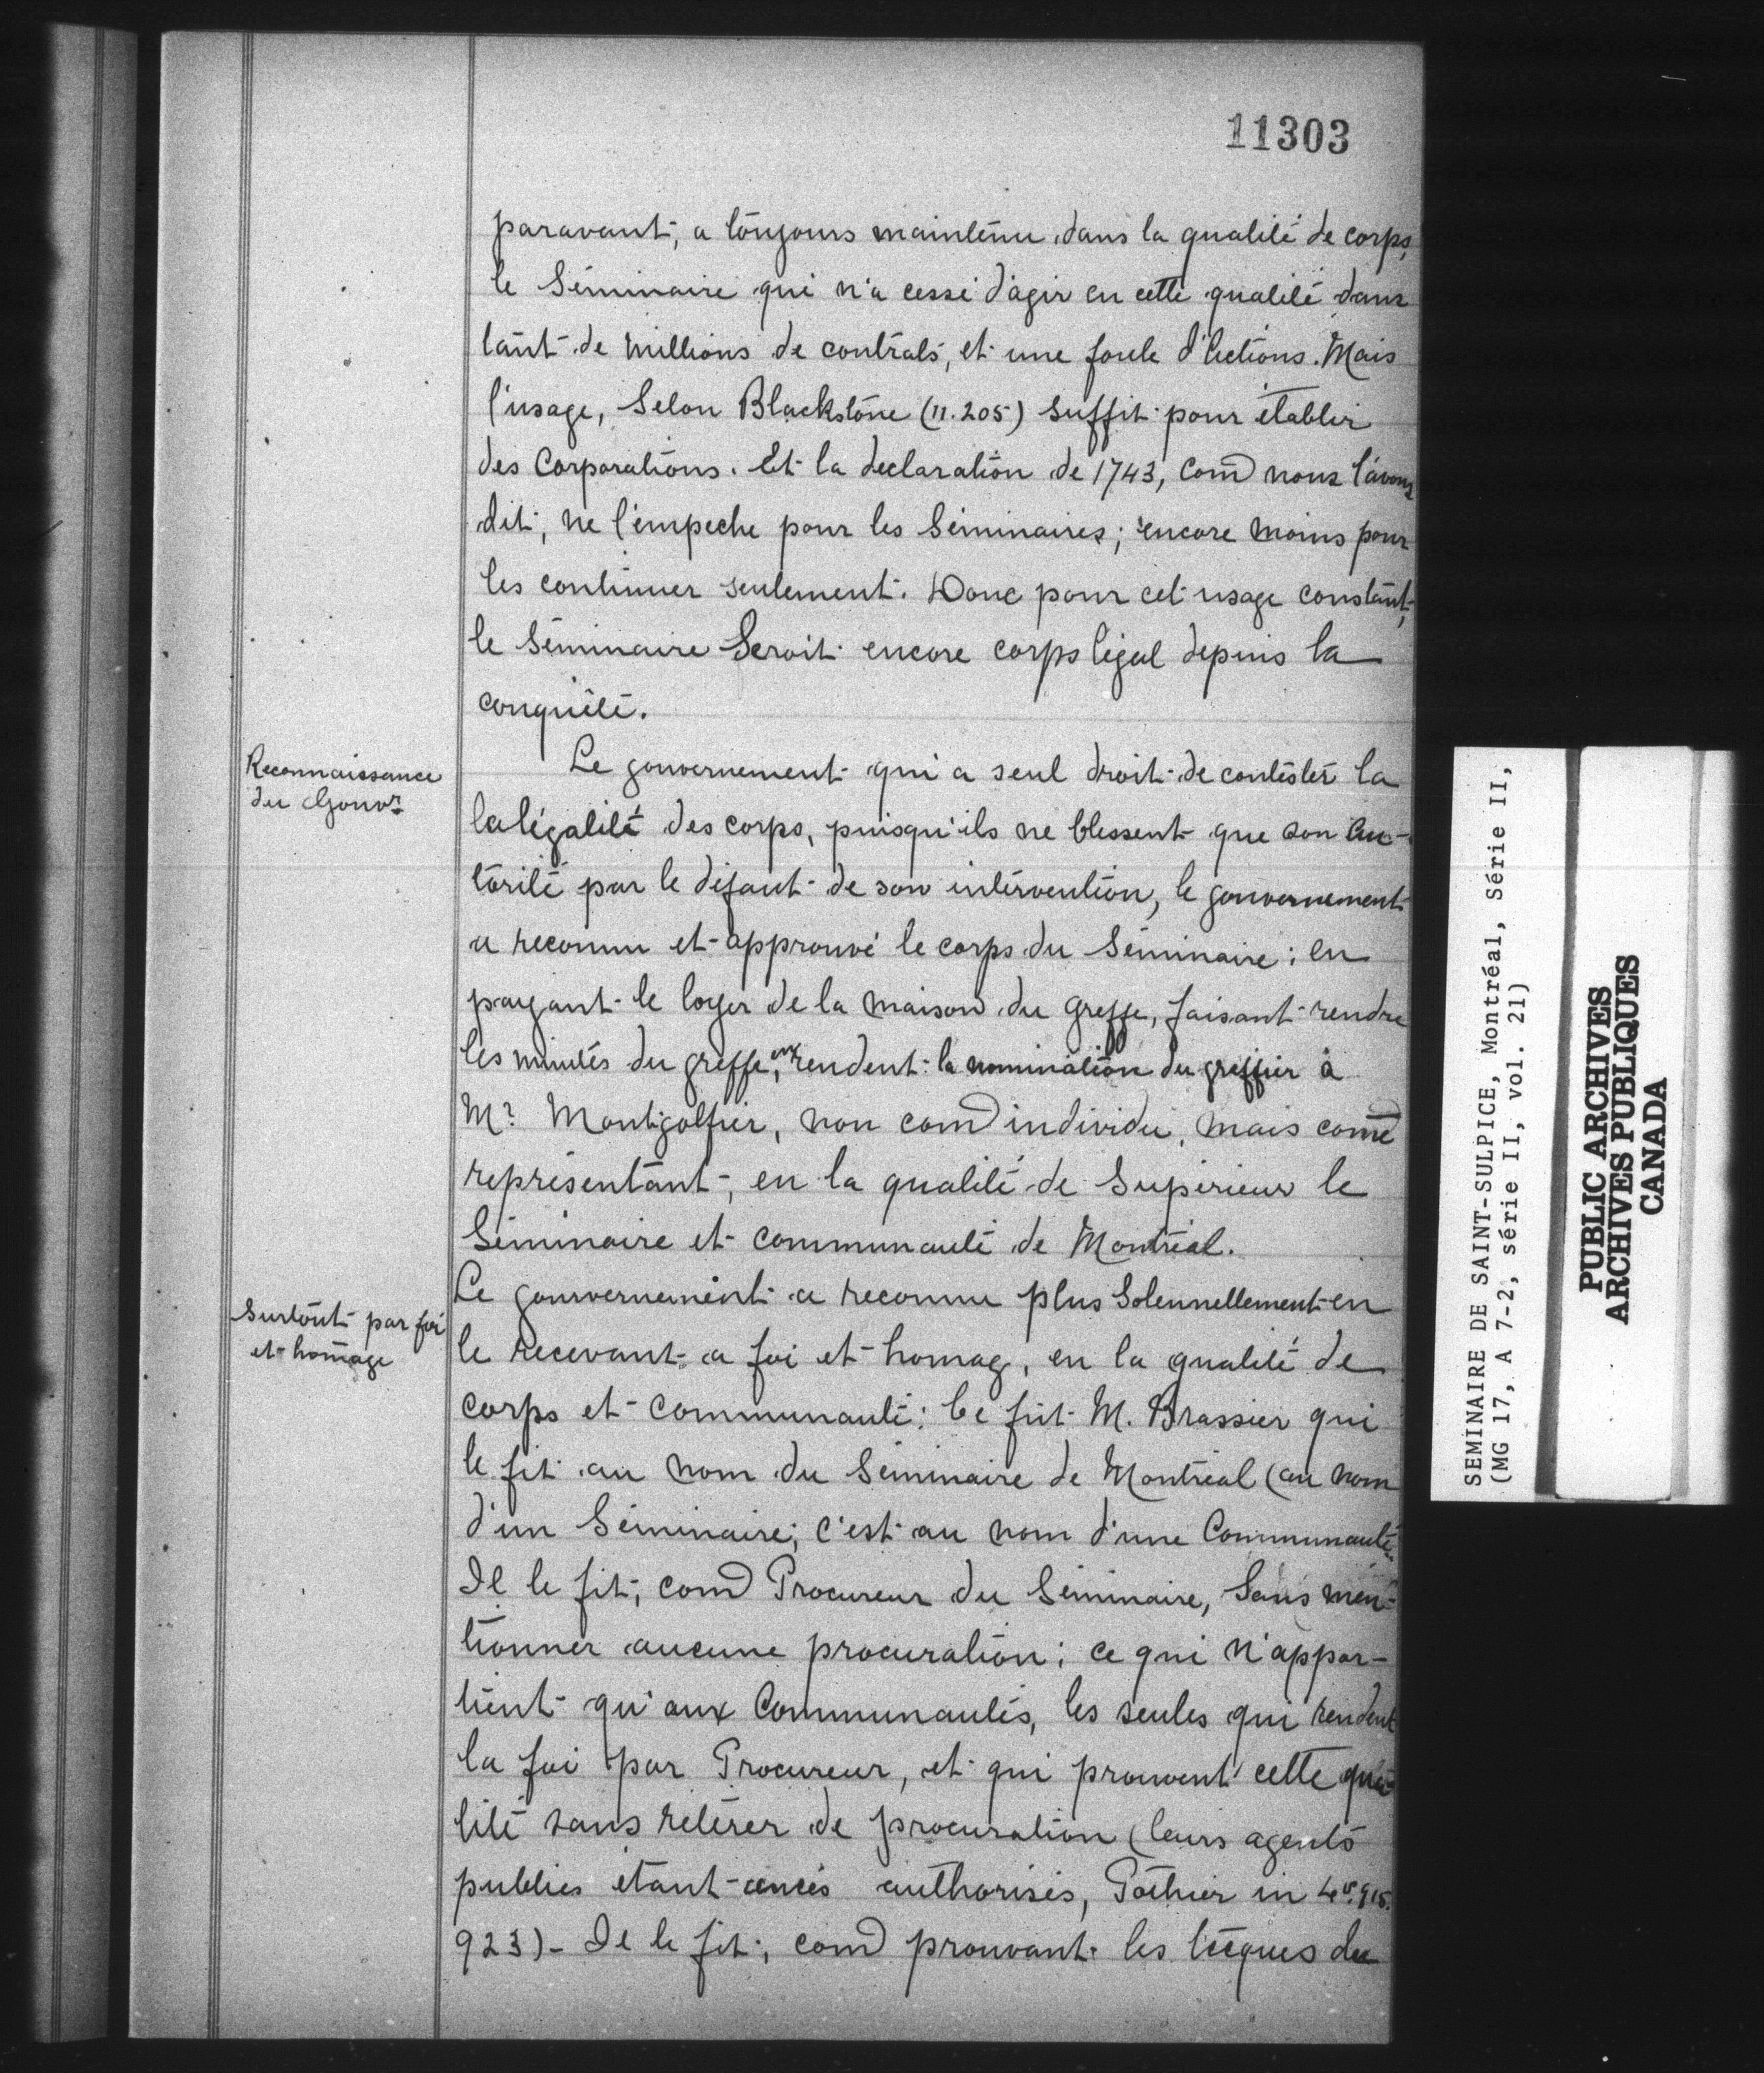 11303
paravant, a toujours maintenu dans la qualité de corps,
le Séminaire qui n'a cessé d'agir en cette qualité dans
tant de millions de contrats, et une foule d'Actions. Mais
l'usage, Selon Blackstone (11.205) suffit pour établir
des Corporations. Et la declaration de 1743, com̄ nous l'avons
dit, ne l'empeche pour les Séminaires; encore moins pour
les continuer seulement. Donc pour cet usage constant,
le Séminaire Seroit encore corps légal depuis la
conquête.
Reconnaissance
du Gouvr
Le gouvernement qui a seul droit de contester la
la légalité des corps, puisqu'ils ne blessent que son Au-
torité par le défaut de son intervention, le gouvernement
a reconnu et approuvé le corps du Séminaire; en
payant le loyer de la maison du Greffe, faisant rendre
les minutes du greffe, en rendent la nomination du greffier à
Mr Montgolfier, non com̄ individu, mais com̄e
représentant, en la qualité de Supérieur le
Séminaire et communauté de Montréal.
Surtout par foi
et homage
Le gouvernement a reconnu plus Solennellement en
le recevant a foi et homag, en la qualité de
corps et Communauté: Ce fut M. Brassier qui
le fit au nom du Séminaire de Montréal (au nom
d'un Séminaire; c'est au nom d'une Communauté
Il le fit, com̄ Procureur du Séminaire, Sans men-
tionner aucune procuration; ce qui n'appar-
tient qu'aux Communautés, les seules qui rendent
la foi par Procureur, et qui prouvent cette qua-
lité sans réterer de procuration (leurs agents
publics étant censés authorisés, Pothier in
923)- Il le fit, com̄ prouvant les du
SEMINAIRE DE SAINT-SULPICE, Montréal, Série II,
(MG 17, A 7-2, série II, vol. 21)
PUBLIC ARCHIVES
ARCHIVES PUBLIQUES
CANADA